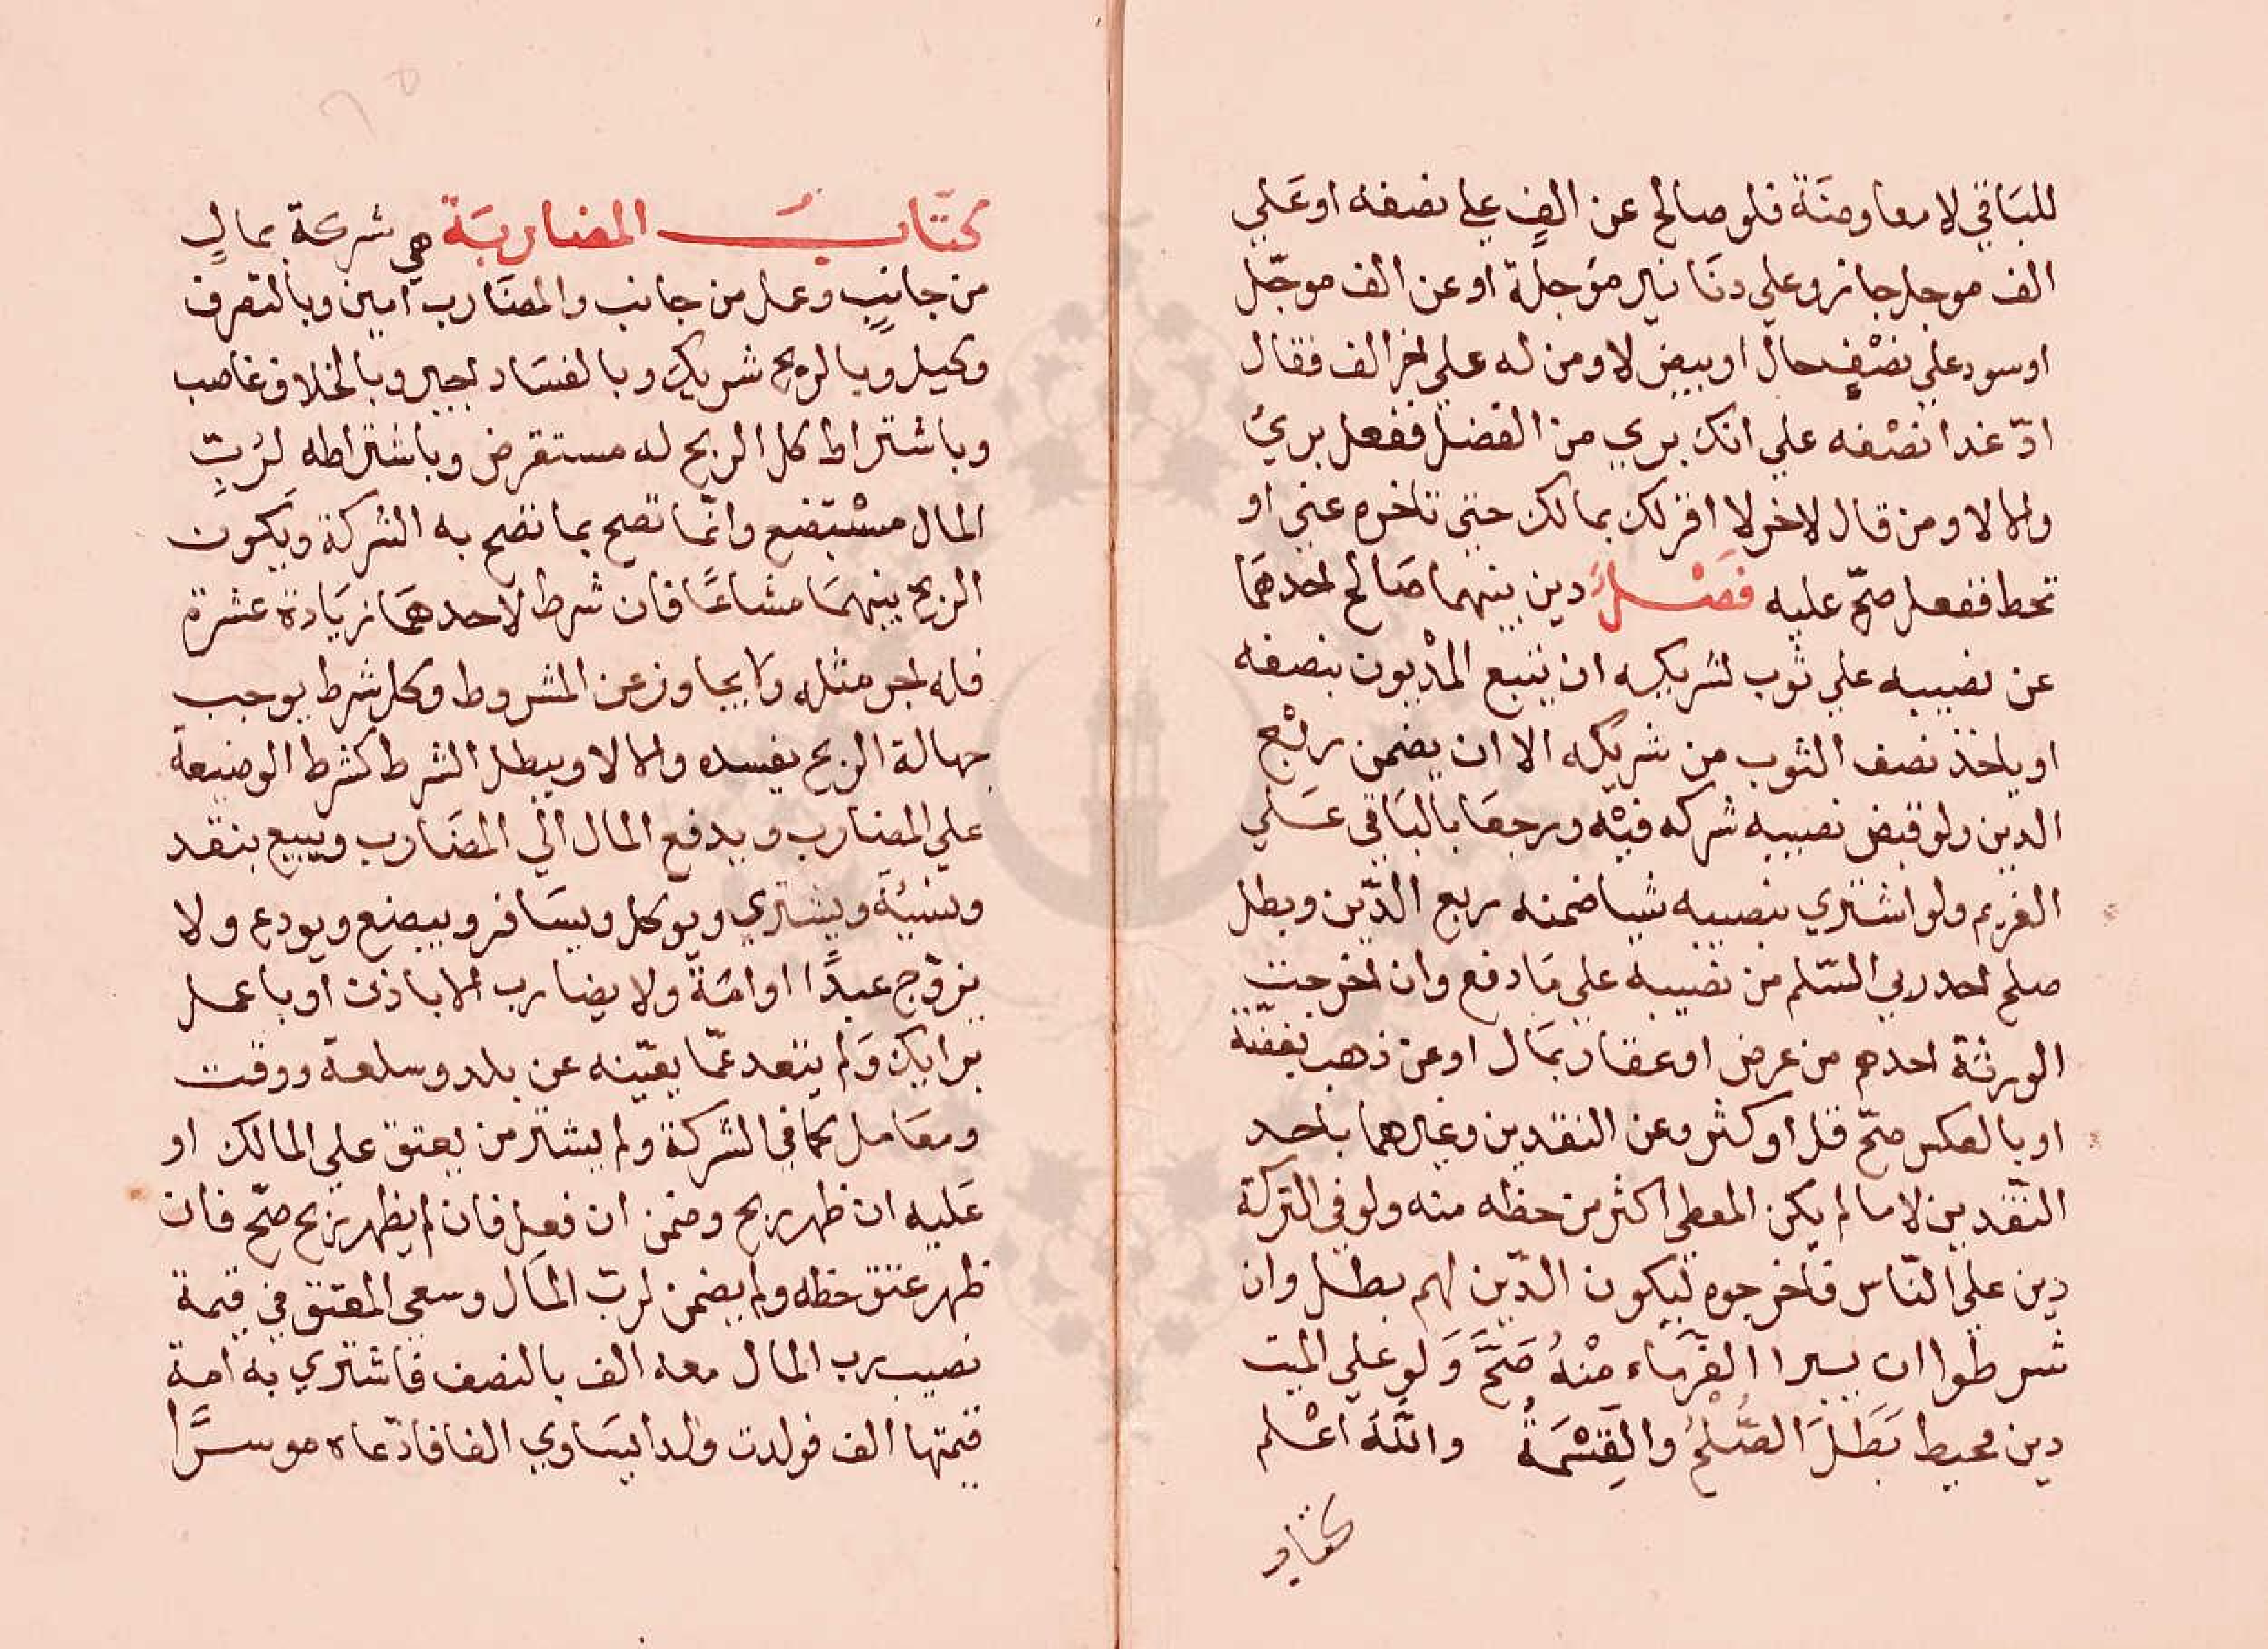 للبَاقي لا معاوضَة فلو صالح عن الفٍ علي نصفه او عَلي
الف موجل جاز وعلي دنَانير موَجلة او عن الف موجّل
او سود علي نصْفٍ حال او بيض لا ومن له علي اخر الف فقال
ادّ غدا نصْفه علي انك بري من الفضل ففعل بريُ
والا لا ومن قال لاخر لا اقر لك بمالك حتي تاخره عني او
تحط ففعل صحّ عليه فصْل دين بينهما صَالح احدهمَا
عن نصيبه علي ثوب لشريكه ان يتبع المدْيون بنصفه
او ياخذ نصف الثوب من شريكه الا ان يضمن ربْع
الدين ولو قبض نصيبه شركه فيْه ورجعَا بالبَاقي عَلي
الغريم ولو اشتري بنصيبه شيا ضمنه ربع الدّين وبطل
صلح احد ربي السّلم من نصيبه علي مَا دفع وان اخرجت
الورثة احدهم من عرض او عقار بمَال او عن ذهب بفضّة
او بالعكس صحّ قل او كثر وعن النقدين وغيرهما باحد
النّقدين لا ما لم يكن المعطي اكثر من حظه منه ولو في التركة
دين علي النّاس فاخرجوه ليَكون الدّين لهم بطل وان
شرطوا ان يبرا الغرَمَاء منْهُ صَحَّ وَلو علي الميت
دين محيط بَطَلَ الصُّلْحُ والقِسْمَةُ واللّه اعْلم
كتاب
كتَابُ المضاربَة هي شركَة بمالٍ
من جانبٍ وعمل من جانب والمضَارب امين وبالتصرف
وكيل وبالربح شريك وبالفسَاد اجير وبالخلاف غاصب
وباشتراط كل الربح له مستقرض وباشتراطه لربّ
المال مسْتبضع وانّما تصح بما تصح به الشركة ويَكون
الربح بينهمَا مشاعًا فان شرط لاحدهمَا زيَادة عشرة
فله اجر مثله ولا يجاوز عن المشروط وكل شرط يوجب
جهالة الربح يفسده والا لا ويبطل الشرط كشرط الوضيعة
علي المضارب ويدفع المال الي المضَارب ويبيع بنقد
ونسيئَة ويشتري ويوكل ويسَافر ويبضع ويودع ولا
يزوّج عبدًا او امَة ولا يضارب الا باذن او باعمل
برايك وَلم يتعد عمّا يعيّنه عن بلد وسلعة ووقت
ومعَامل كما في الشركة ولم يشتر من يعتق علي المالك او
عَليه ان ظهر ربح وضمن ان فعل فان لم يظهر ربح صحّ فان
ظهر عتق حظه ولم يضمن لربّ المَال وسعي المعتق في قيمة
نصيب رب المال معه الف بالنصف فاشتري به امة
قيمتها الف فولدت ولدا يسَاوي الفا فادّعاه موسرًا